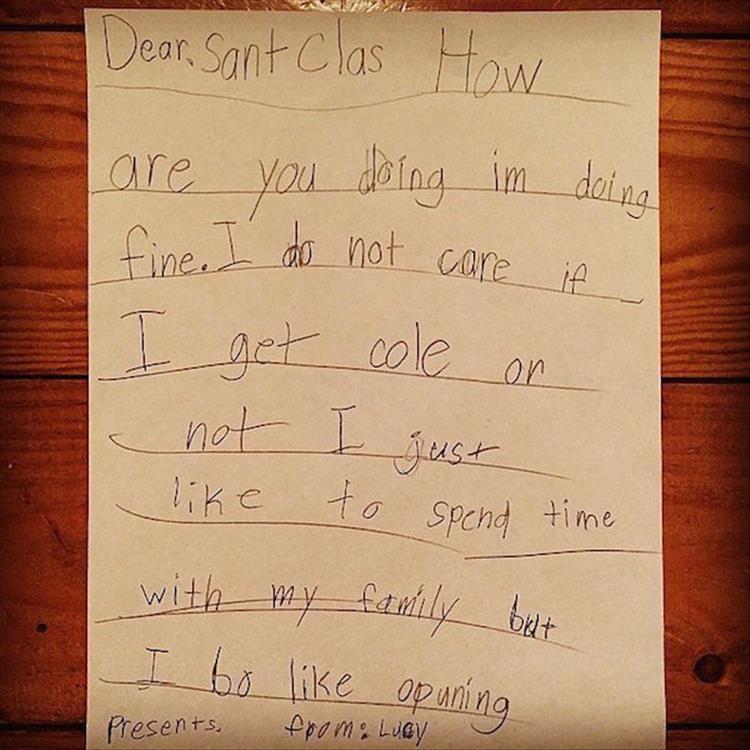 Dear. Sant Clas How
are you doing im doing
fine. I do not care if
I get cole or
not I just
like to spend time
with my family but
I bo like opuning
presents. from: Lucy